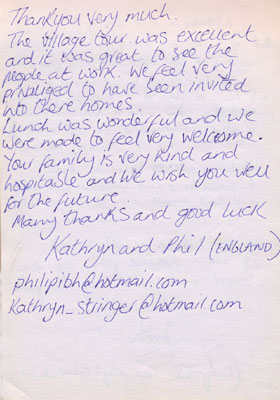 Thankyou very much.
The village tour was excellent
and it was great to see the
people at work. We feel very
privaliged to have been invited
into there homes.
Lunch was wonderful and we
were made to feel very welcome.
Your family is very kind and
hospitable and we wish you well
for the future.
Many thanks and good luck
Kathryn and Phil (ENGLAND)
philipibh@hotmail.com
Kathryn_stringer@hotmail.com